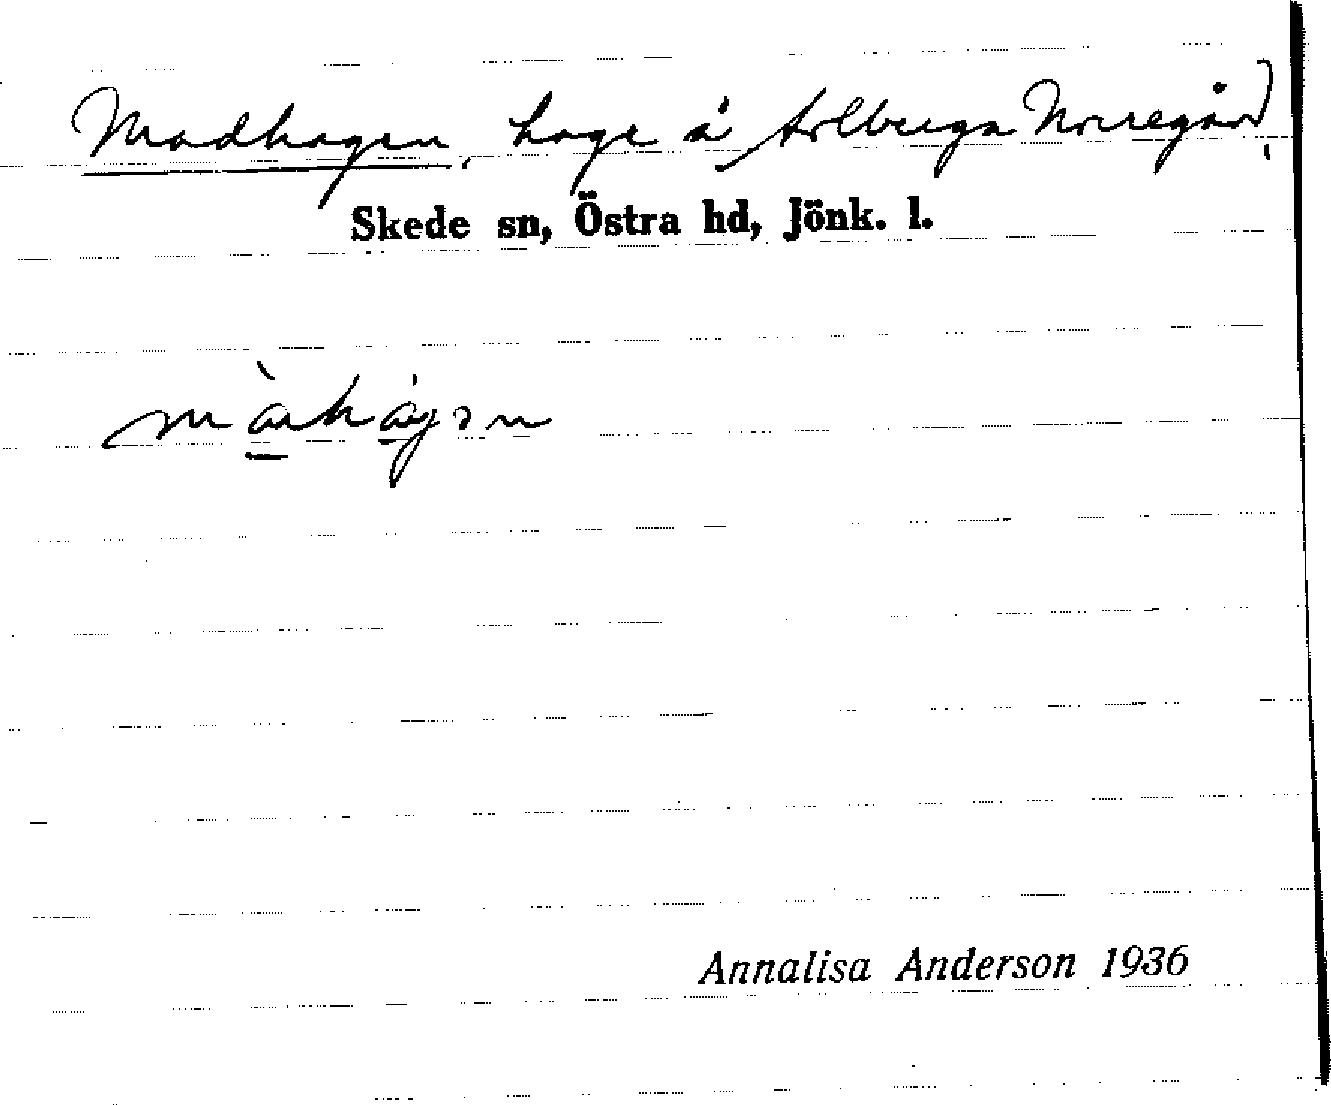 Madhagen, hage å Arlberga Norregård,
Skede sn, Östra hd, Jönk. l.
màhágən
Annalisa Anderson 1936